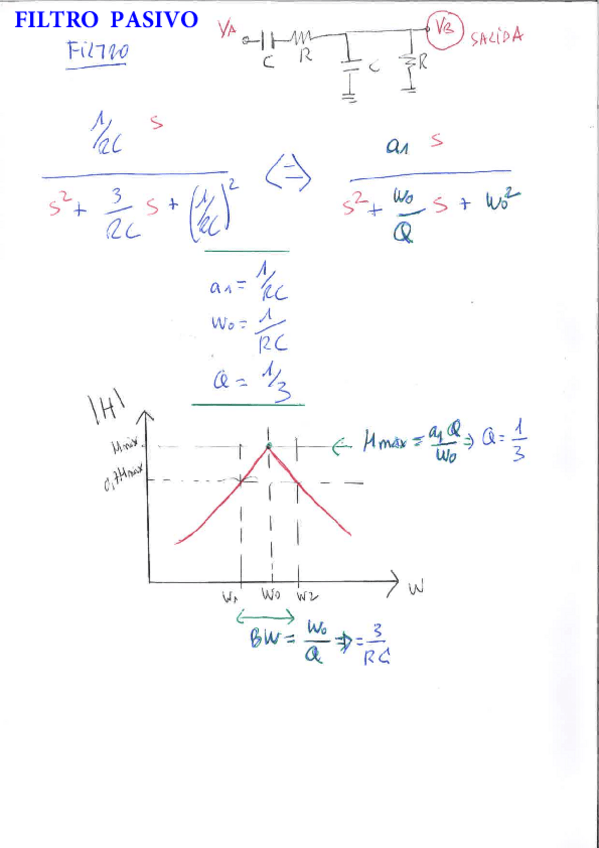 FILTRO PASIVO
Filtro
VA C R C R VB SALIDA
1/RC s / (s² + 3/RC s + (1/RC)²) <=> a1 s / (s² + wo/Q s + wo²)
a1 = 1/RC
wo = 1/RC
Q = 1/3
|H|
Hmáx.
0,7Hmáx
← Hmax = a1 Q/wo => Q = 1/3
w1 wo w2 w
BW = wo/Q => = 3/RC